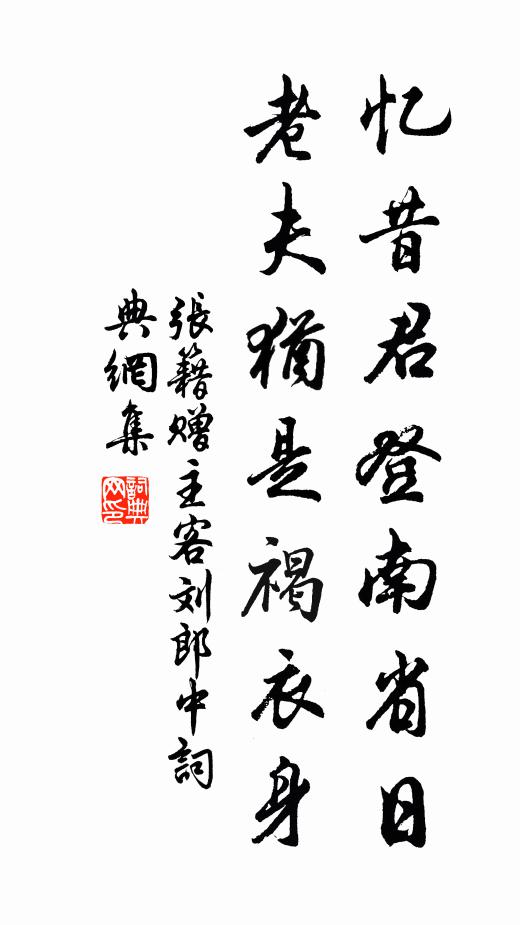 忆昔君登南省日
老夫犹是褐衣身
張籍赠主客刘郎中詞
典網集
詞典
网印